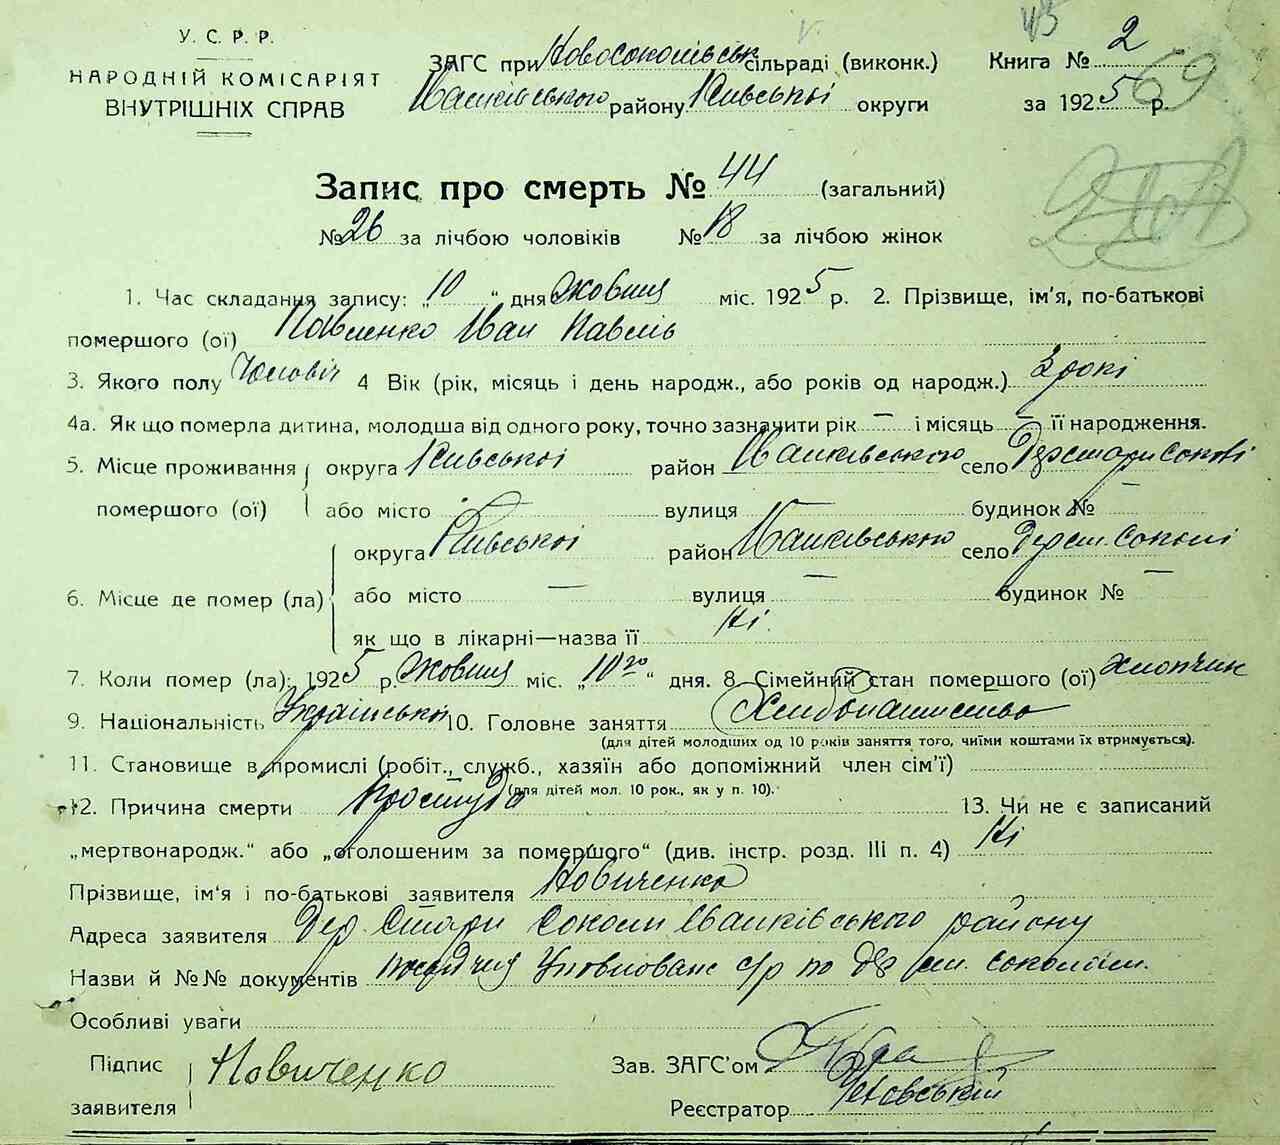 У. С. Р. Р.
НАРОДНІЙ КОМІСАРІЯТ
ВНУТРІШНІХ СПРАВ
ЗАГС при Новосокольськ сільраді (виконк.)
Іванківського району Київської округи
Книга № 2
за 1925 р.
69
45
Запис про смерть № 44 (загальний)
№ 26 за лічбою чоловіків № 18 за лічбою жінок
1. Час складання запису: „10“ дня Жовтня міс. 1925 р. 2. Прізвище, ім'я, по-батькові
помершого (ої) Павленко Іван Павель
3. Якого полу Чоловіч 4 Вік (рік, місяць і день народж., або років од народж.) 3 рокі
4а. Як що померла дитина, молодша від одного року, точно зазначити рік — і місяць — її народження.
5. Місце проживання округа Київської район Іванківського село Дер Стари Соколі
помершого (ої) або місто вулиця — будинок № —
округа Київської район Іванківського село Дер ст. Соколі
6. Місце де помер (ла) або місто — вулиця — будинок № —
як що в лікарні—назва її Ні.
7. Коли помер (ла): 1925 р. Жовтня міс. „10го“ дня. 8. Сімейний стан помершого (ої) хлопчик
9. Національність Українській 10. Головне заняття Хлибопашество
(для дітей молодших од 10 років заняття того, чиїми коштами їх втримується).
11. Становище в промислі (робіт., служб., хазяїн або допоміжний член сім'ї)
(для дітей мол. 10 рок., як у п. 10).
12. Причина смерти Простуда 13. Чи не є записаний
„мертвонародж.“ або „оголошеним за помершого“ (див. інстр. розд. III п. 4) Ні
Прізвище, ім'я і по-батькові заявителя Новиченко
Адреса заявителя Дер. Стари Соколи Іванківського району
Назви й №№ документів Уповнованє с/р по дер ст. соколам.
Особливі уваги
Підпис заявителя Новиченко
Зав. ЗАГС'ом
Реєстратор